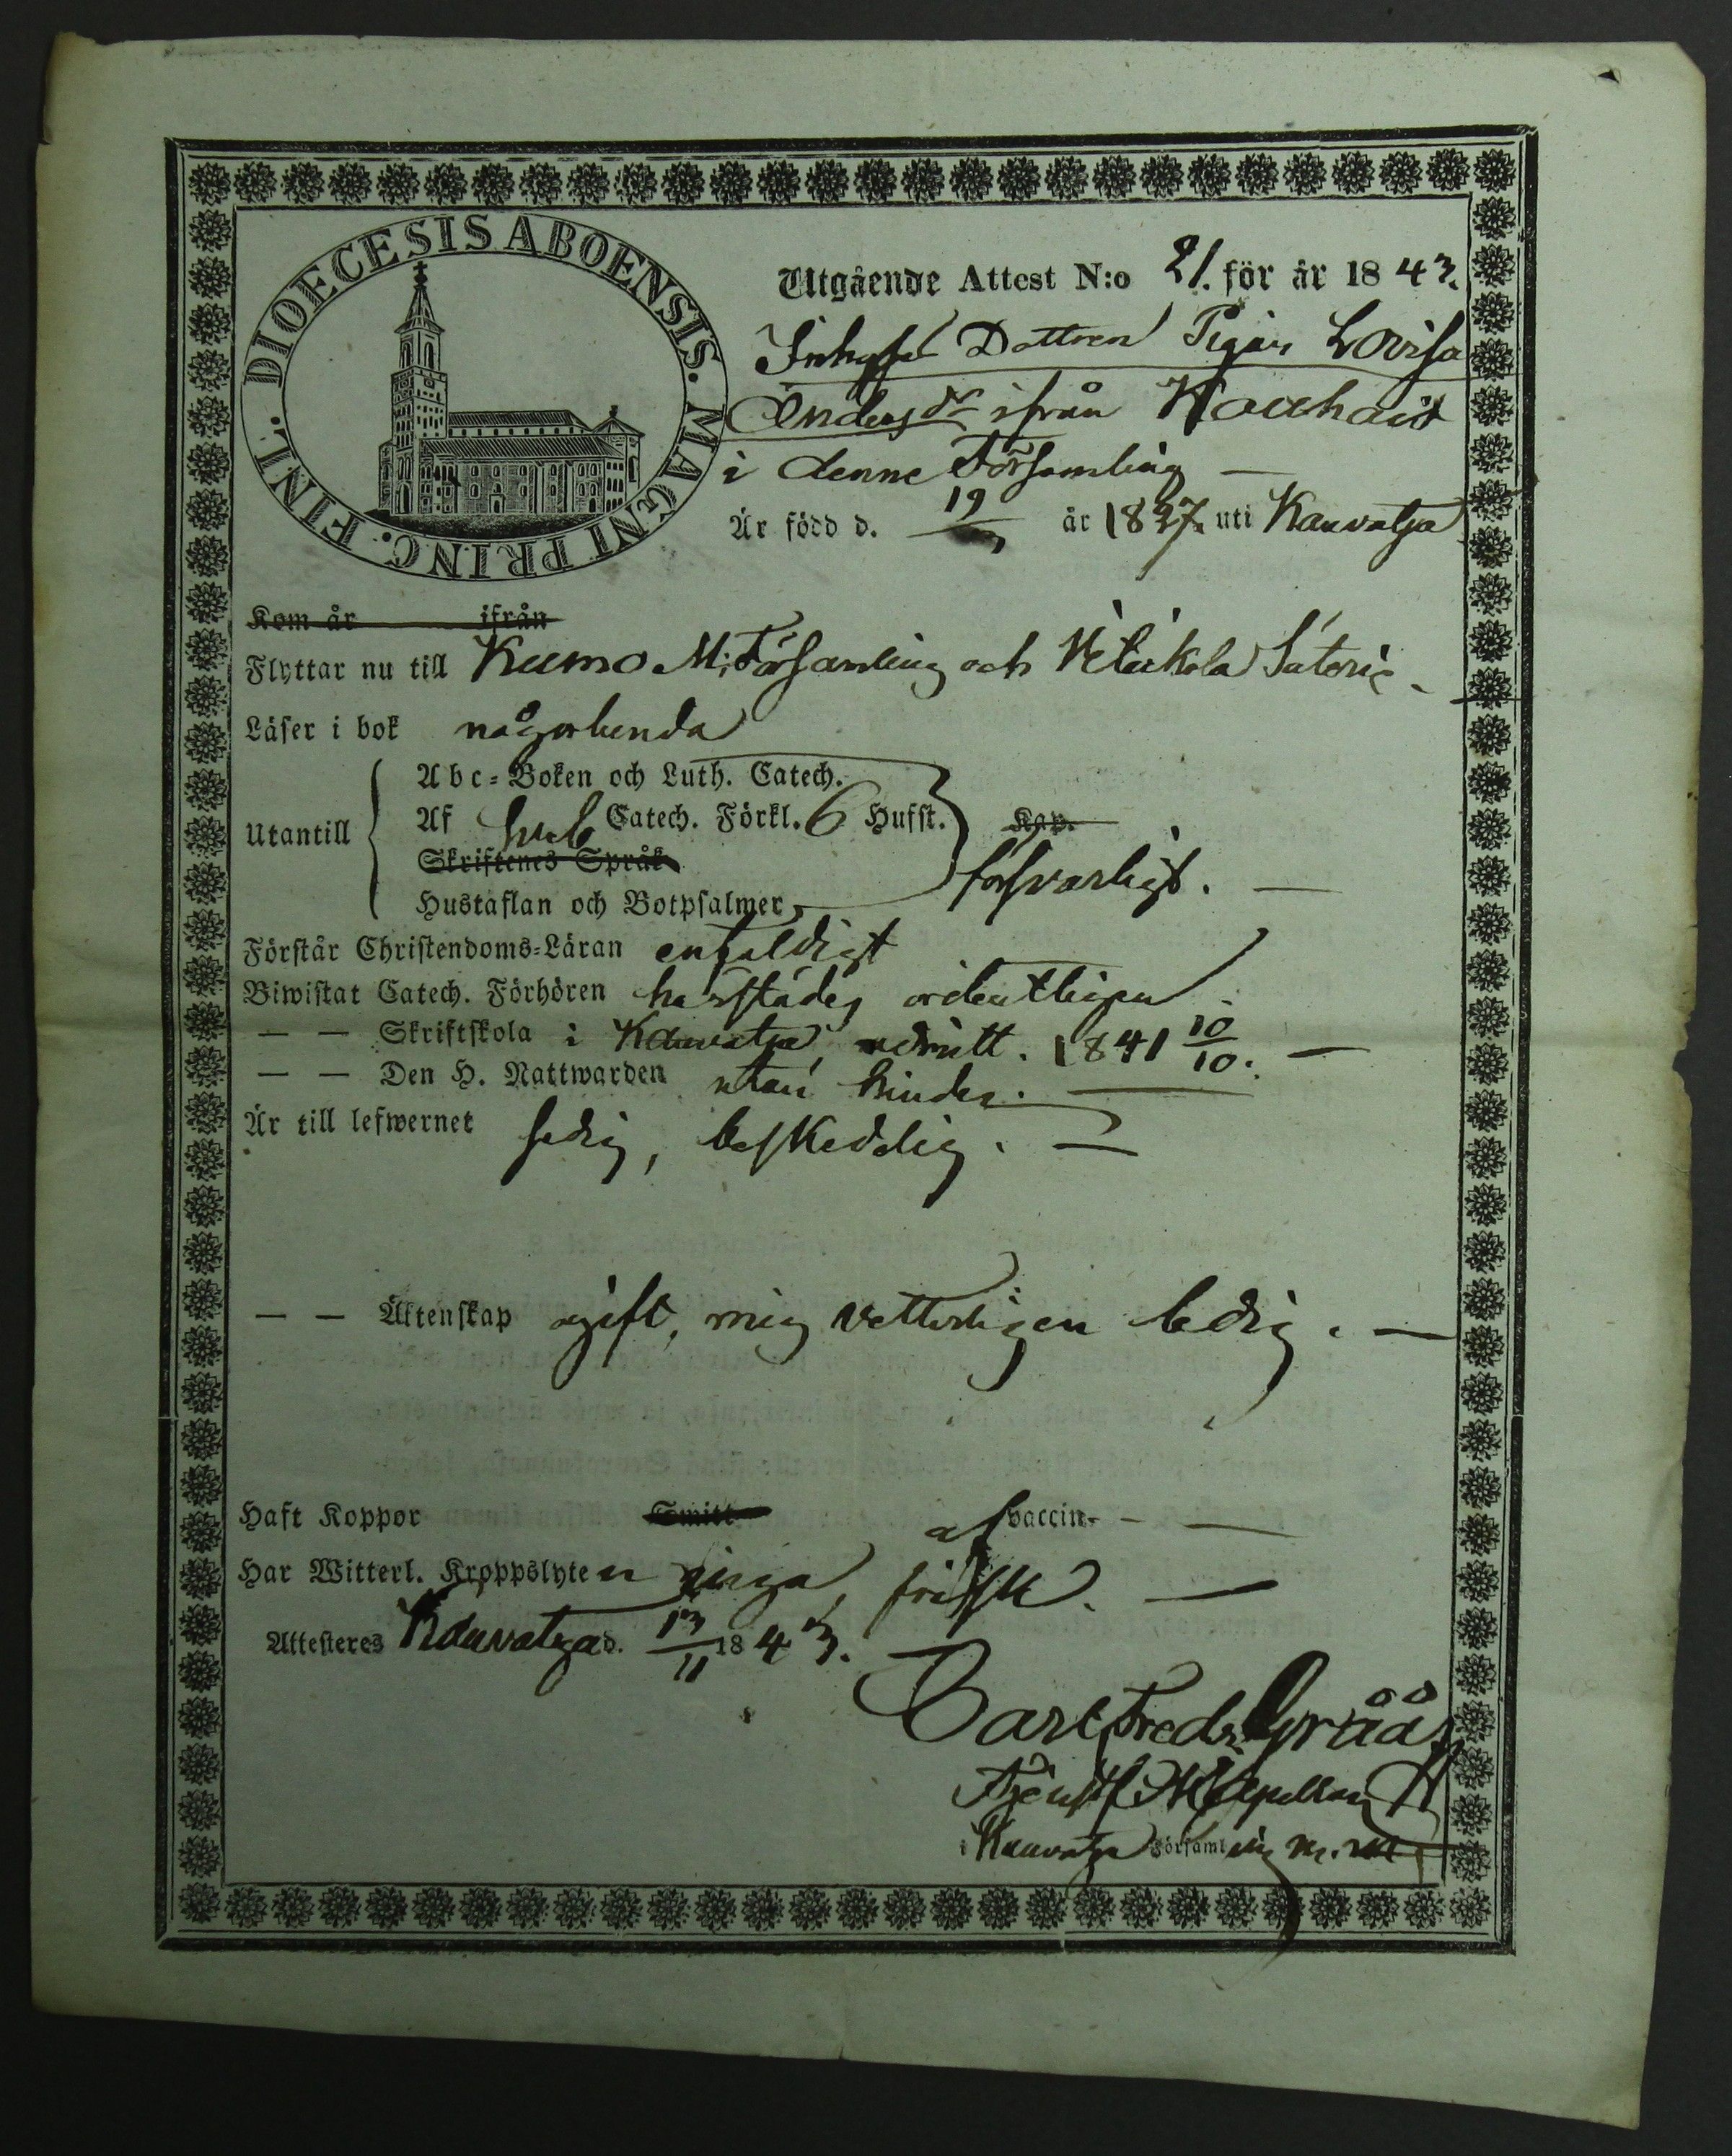 DIOECESIS ABOENSIS. MAGNI PRINC. FINL.
Utgående Attest N:o 21. för år 1843.
Inhyses Dottren Pigan Lovisa
Andersdr ifrån
i denne Församling —
Är född d. 19 år 1827 uti Kauvatsa
Kom år ifrån
Flyttar nu till Kumo M. Församling och Säteri
Läser i bok någorlunda
Utantill
Abc-Boken och Luth. Catech.
Af Sveb Catech. Förkl. 6 Hufst. Kap.
Skriftenes Språk
försvarligt. —
Hustaflan och Botpsalmer
Förstår Christendoms-Läran enfaldigt
Biwistat Catech. Förhören härstädes ordentligen.
— — Skriftskola i Kauvatsa, admitt. 1841 10/10. —
— — Den H. Nattwarden utan hinder. —
Är till lefwernet sedig, beskedlig. —
— — Äktenskap ogift, mig vetterligen ledig. —
Haft Koppor Smitt af vaccin. —
Har Witterl. Kroppslyten inga, frisk. —
Attesteres Kauvatsa d. 13/11 1843.
Carl Fredr. Gråå
Tjenstf. Capellan
i Kauvatsa Församling m.m.